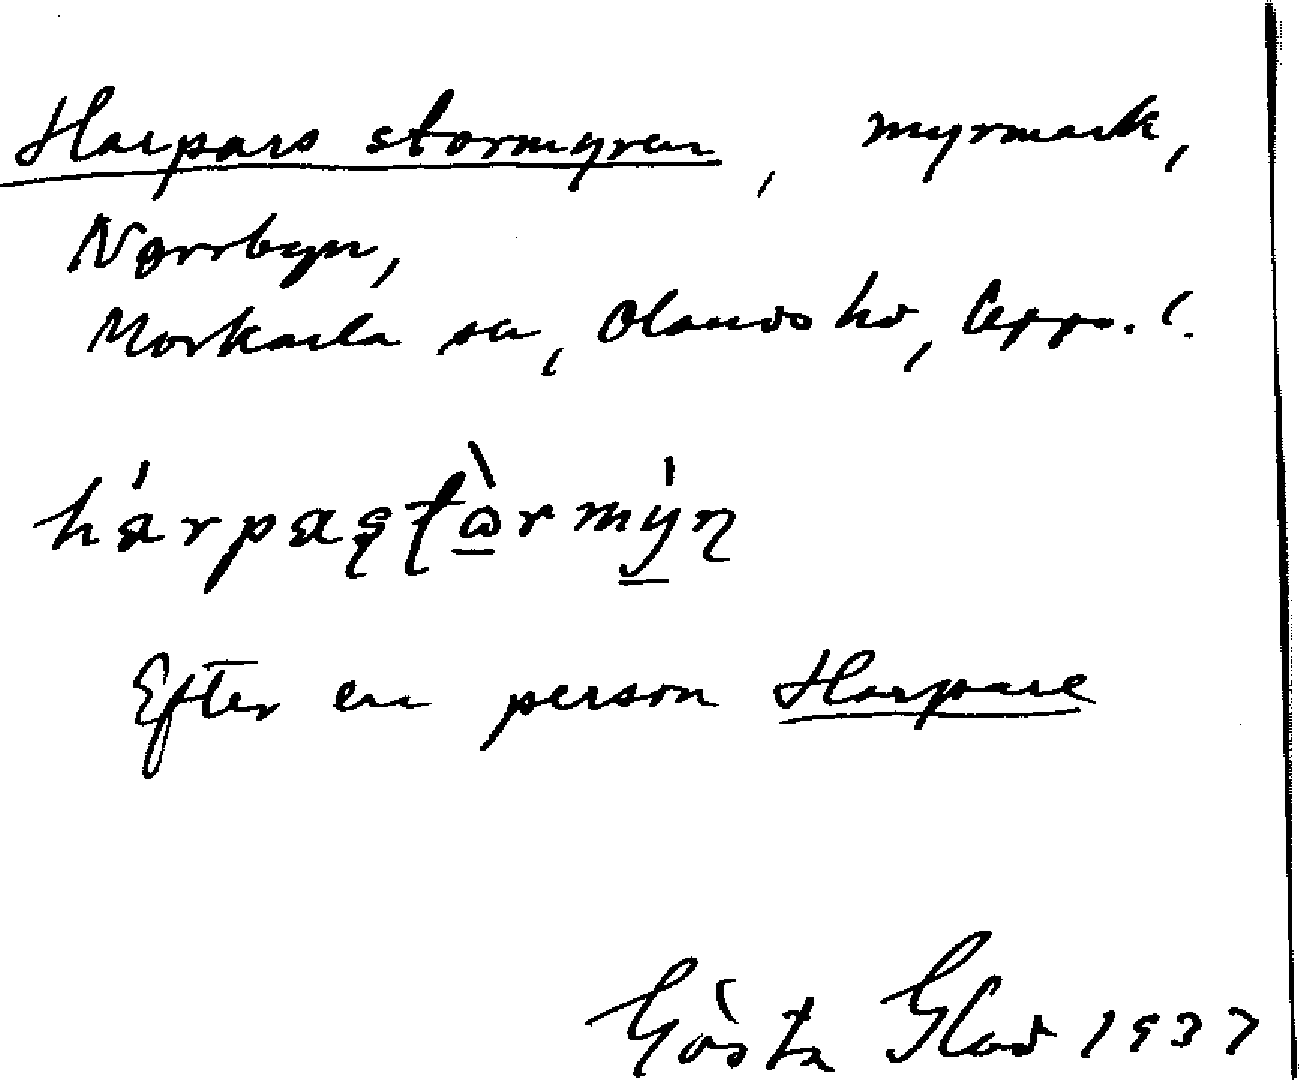 Harpars stormyren, myrmark,
Norrbyn,
Morkarla sn, Olands hd, Upps. l.
hárpaʂʈὼrmýɳ
Efter en person Harpare
Gösta Glad 1937